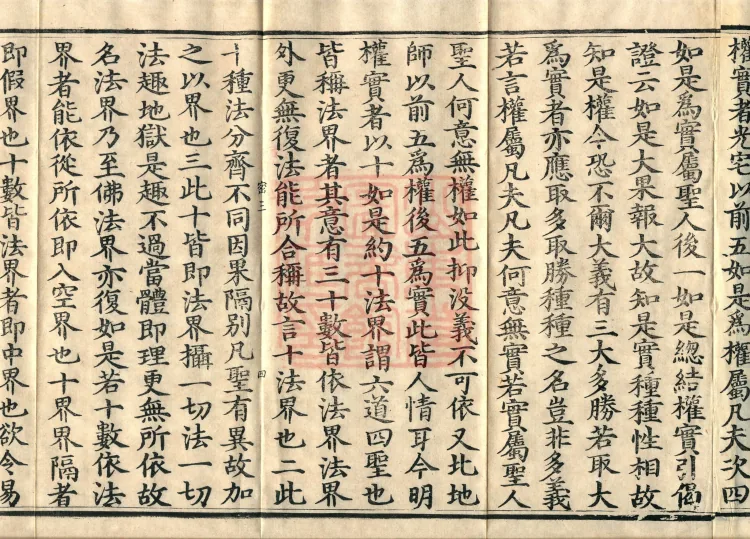 權實者光宅以前五如是爲權屬凡夫次四
如是爲實屬聖人後一如是總結權實引偈
證云如是大果報大故知是實種種性相故
知是權今恐不爾大義有三大多勝若取大
爲實者亦應取多取勝種種之名豈非多義
若言權屬凡夫凡夫何意無實若實屬聖人
聖人何意無權如此抑没義不可依又北地
師以前五爲權後五爲實此皆人情耳今明
權實者以十如是約十法界謂六道四聖也
皆稱法界者其意有三十數皆依法界法界
外更無復法能所合稱故言十法界也二此
十種法分齊不同因果隔別凡聖有異故加
之以界也三此十皆即法界攝一切法一切
法趣地獄是趣不過當體即理更無所依故
名法界乃至佛法界亦復如是若十數依法
界者能依從所依即入空界也十界界隔者
即假界也十數皆法界者即中界也欲令易